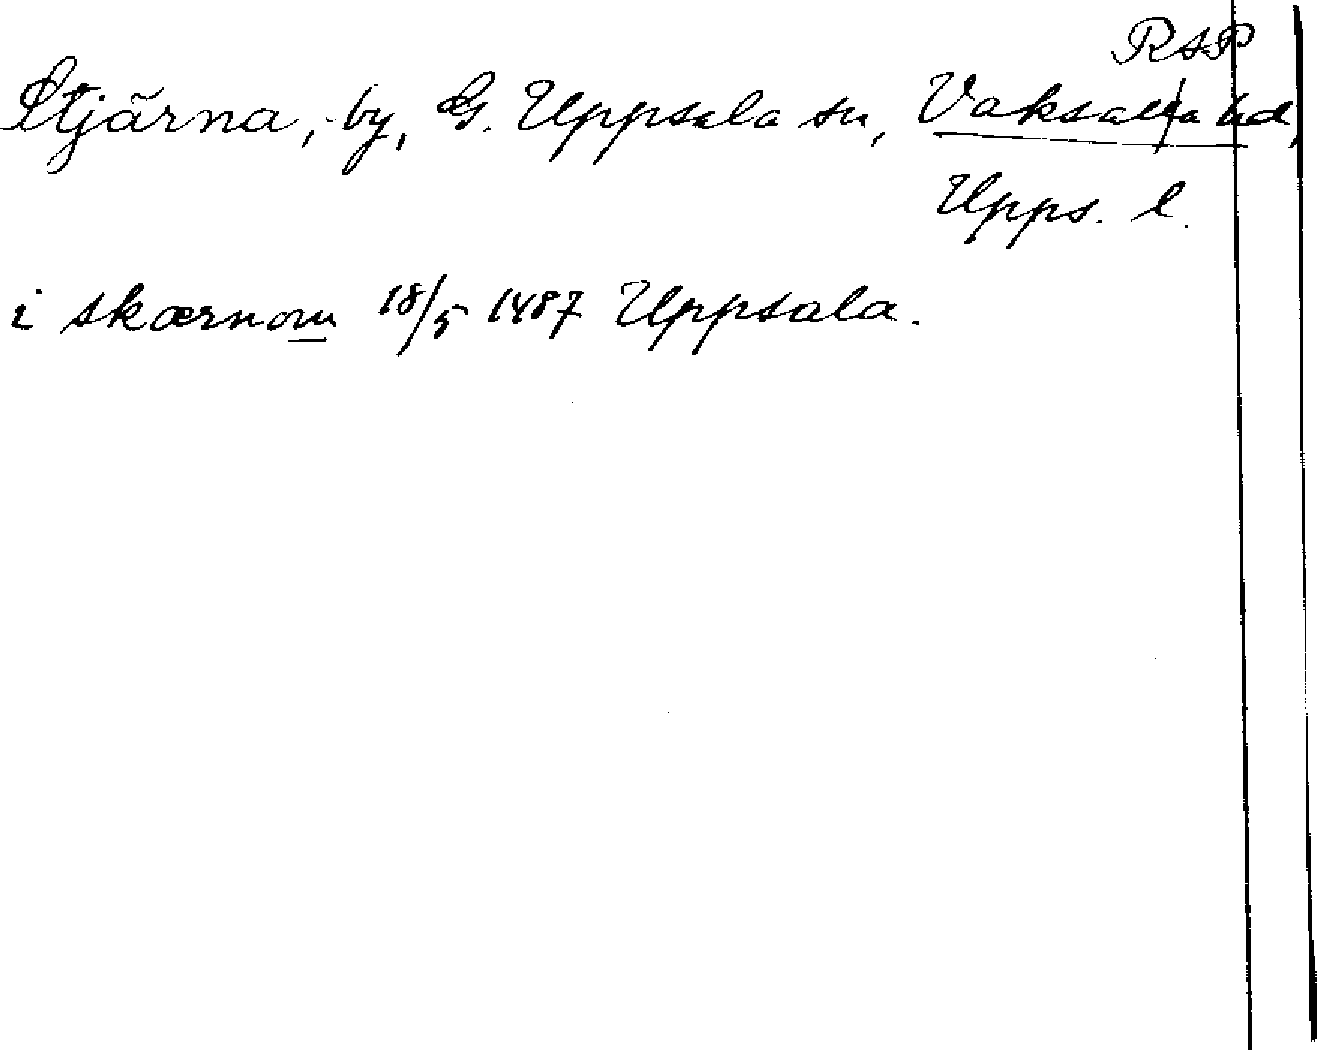 RAP
Stjärna, by, G. Uppsala sn, Vaksala hd,
Upps. l.
i skærnom 18/5 1487 Uppsala.